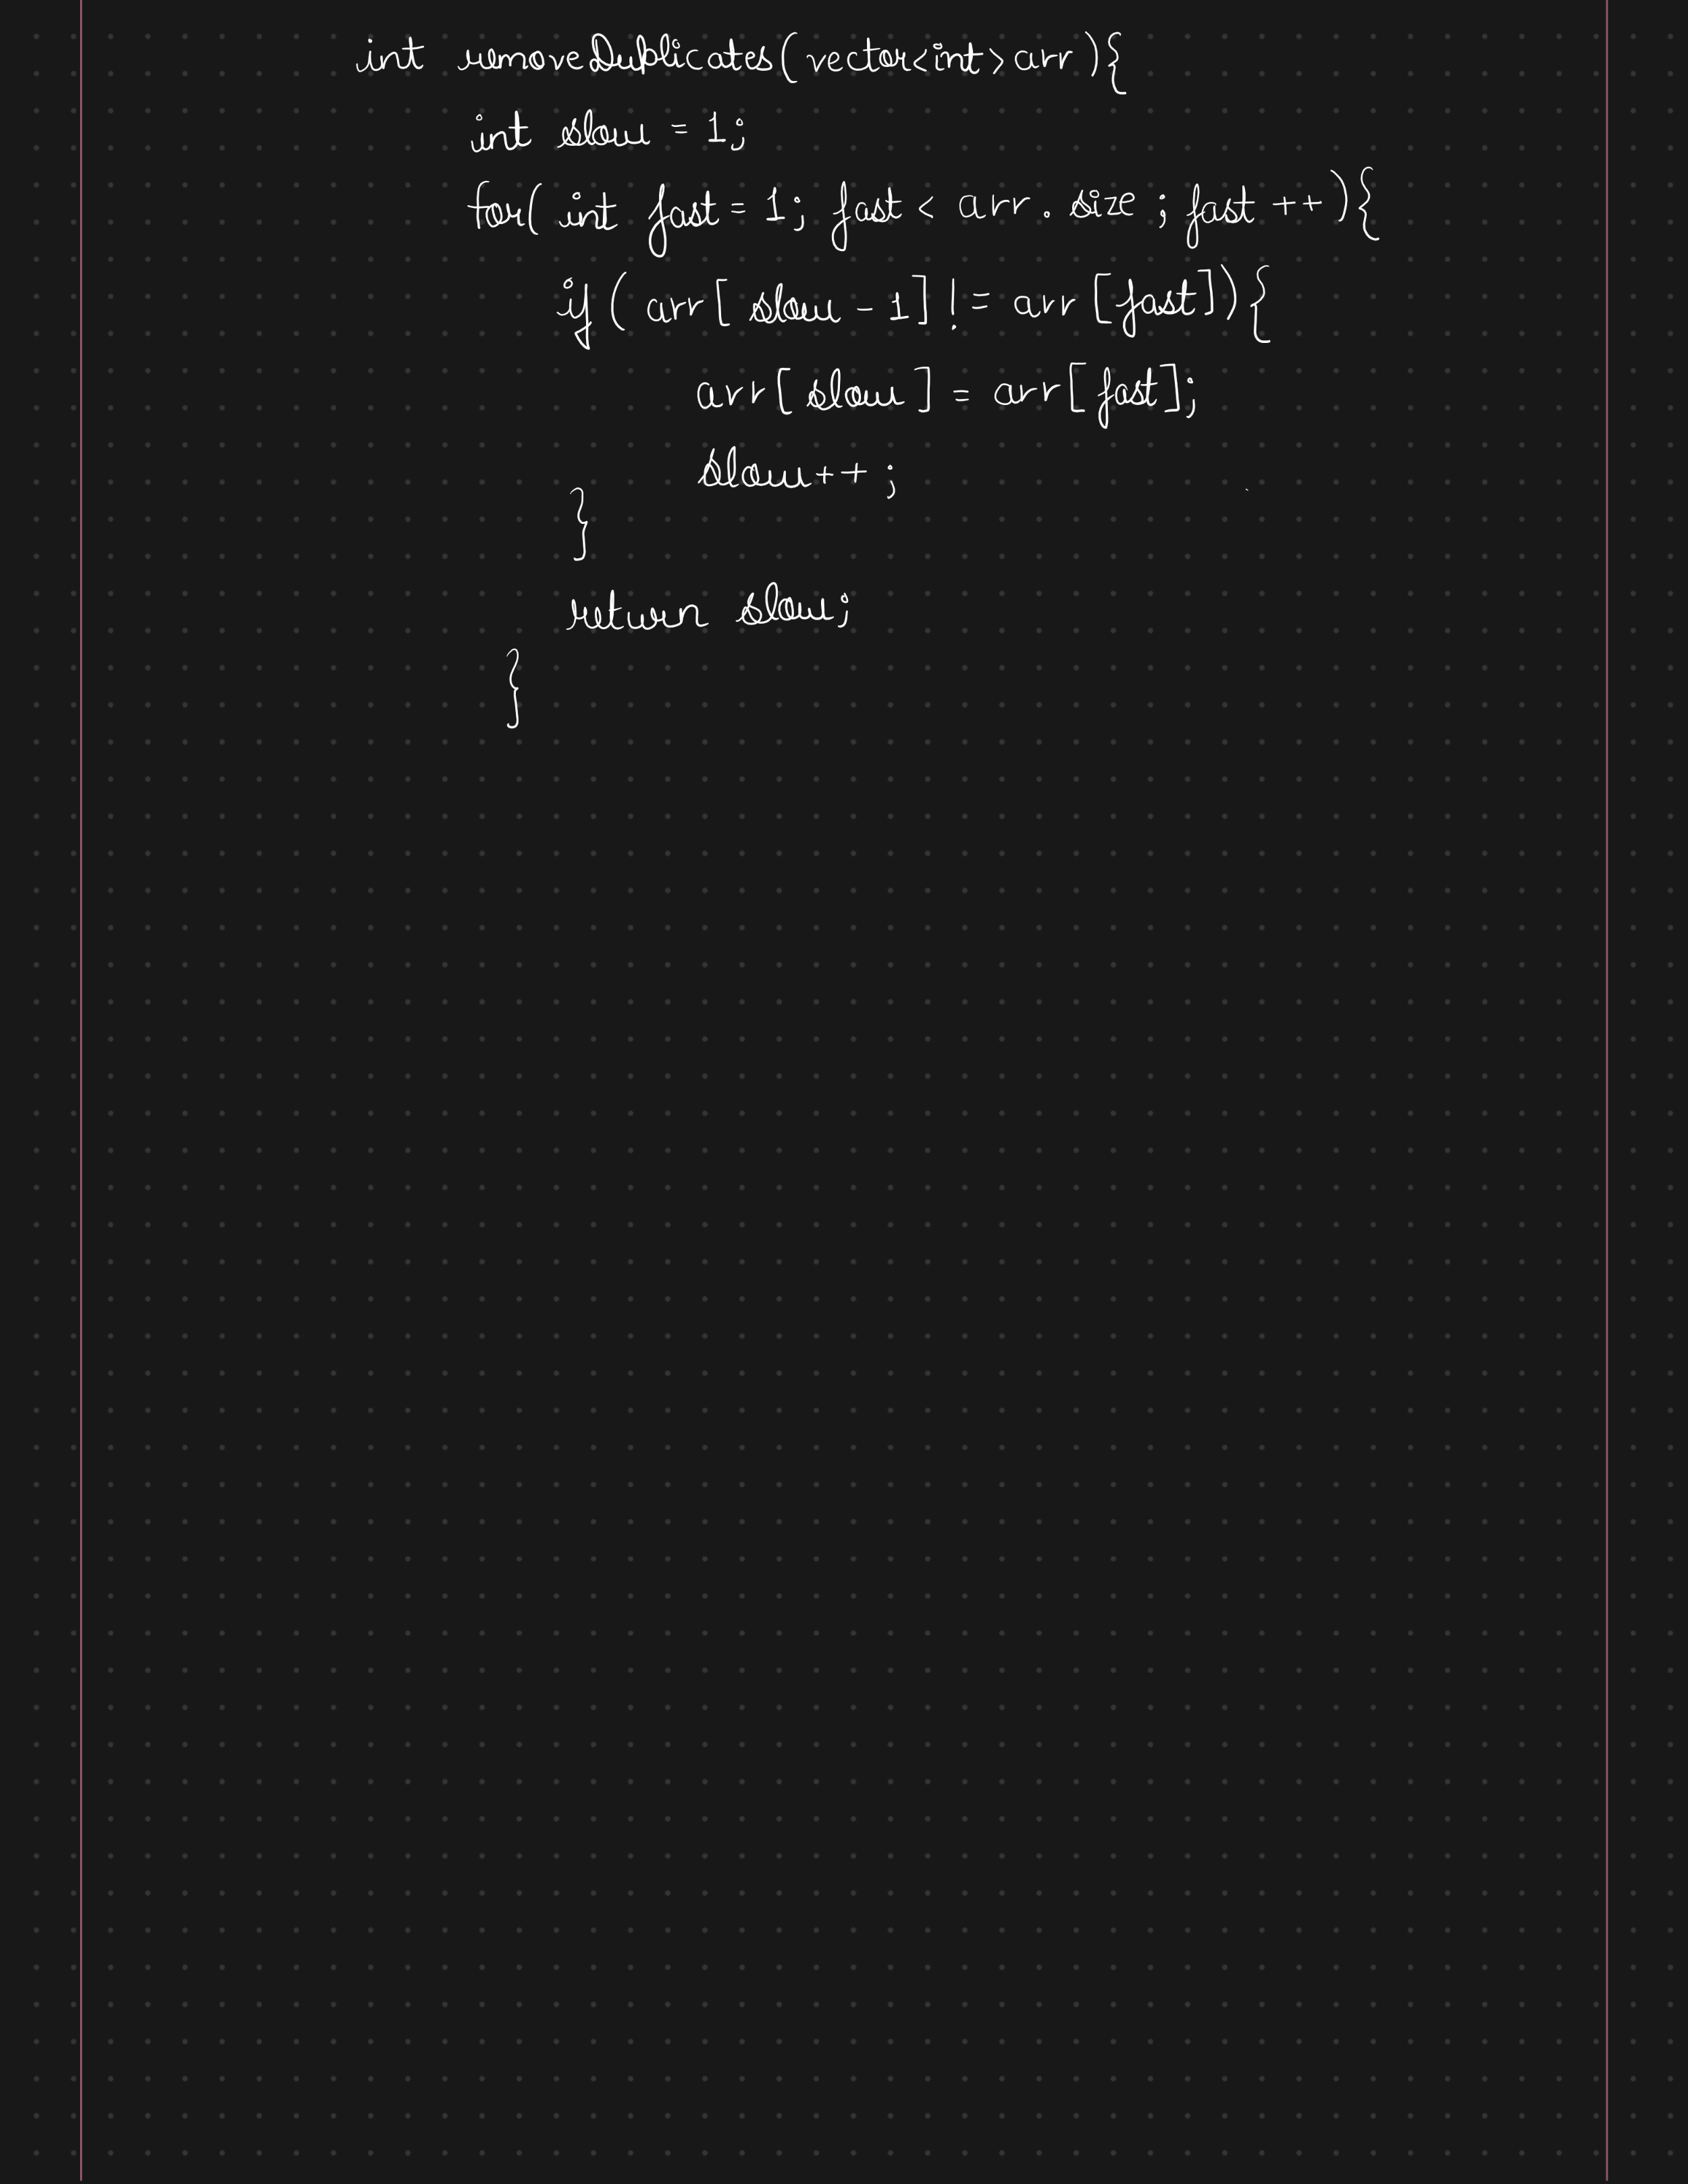 int removeDuplicates(vector<int>arr){
int slow = 1;
for( int fast = 1; fast < arr. size ; fast ++){
if ( arr[ slow - 1] != arr [fast]){
arr[ slow ] = arr[ fast];
slow++ ;
}
return slow;
}